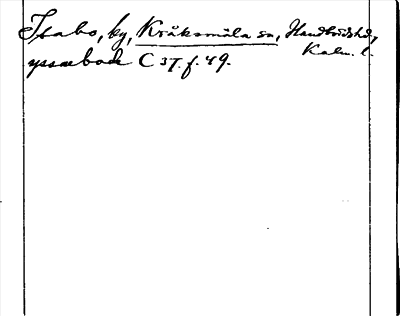 Isabo, by, Kråksmåla sn, Handbördshd,
Kalm. l.
yssæbode C 37. f. 49.